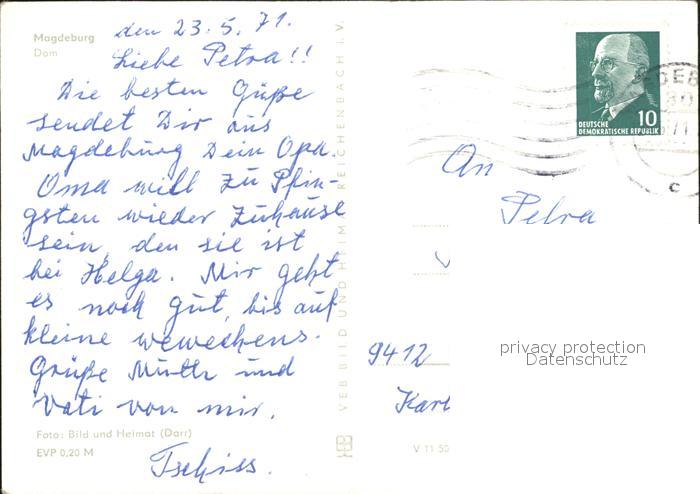 Magdeburg
Dom
den 23.5.71.
Liebe Petra!!
Die besten Güße
sendet Dir aus
Magdeburg Dein Opa.
Oma will zu Pfin-
gsten wieder Zuhause
sein, den sie ist
bei Helga. Mir geht
es noch gut, bis auf
kleine wewechens.
Grüße Mutti und
Vati von mir.
Tschiss.
Foto: Bild und Heimat (Darr)
EVP 0,20 M
VEB BILD UND HEIMAT REICHENBACH I. V.
V 11 50
10
DEUTSCHE
DEMOKRATISCHE REPUBLIK
An
Petra
9412
privacy protection
Datenschutz